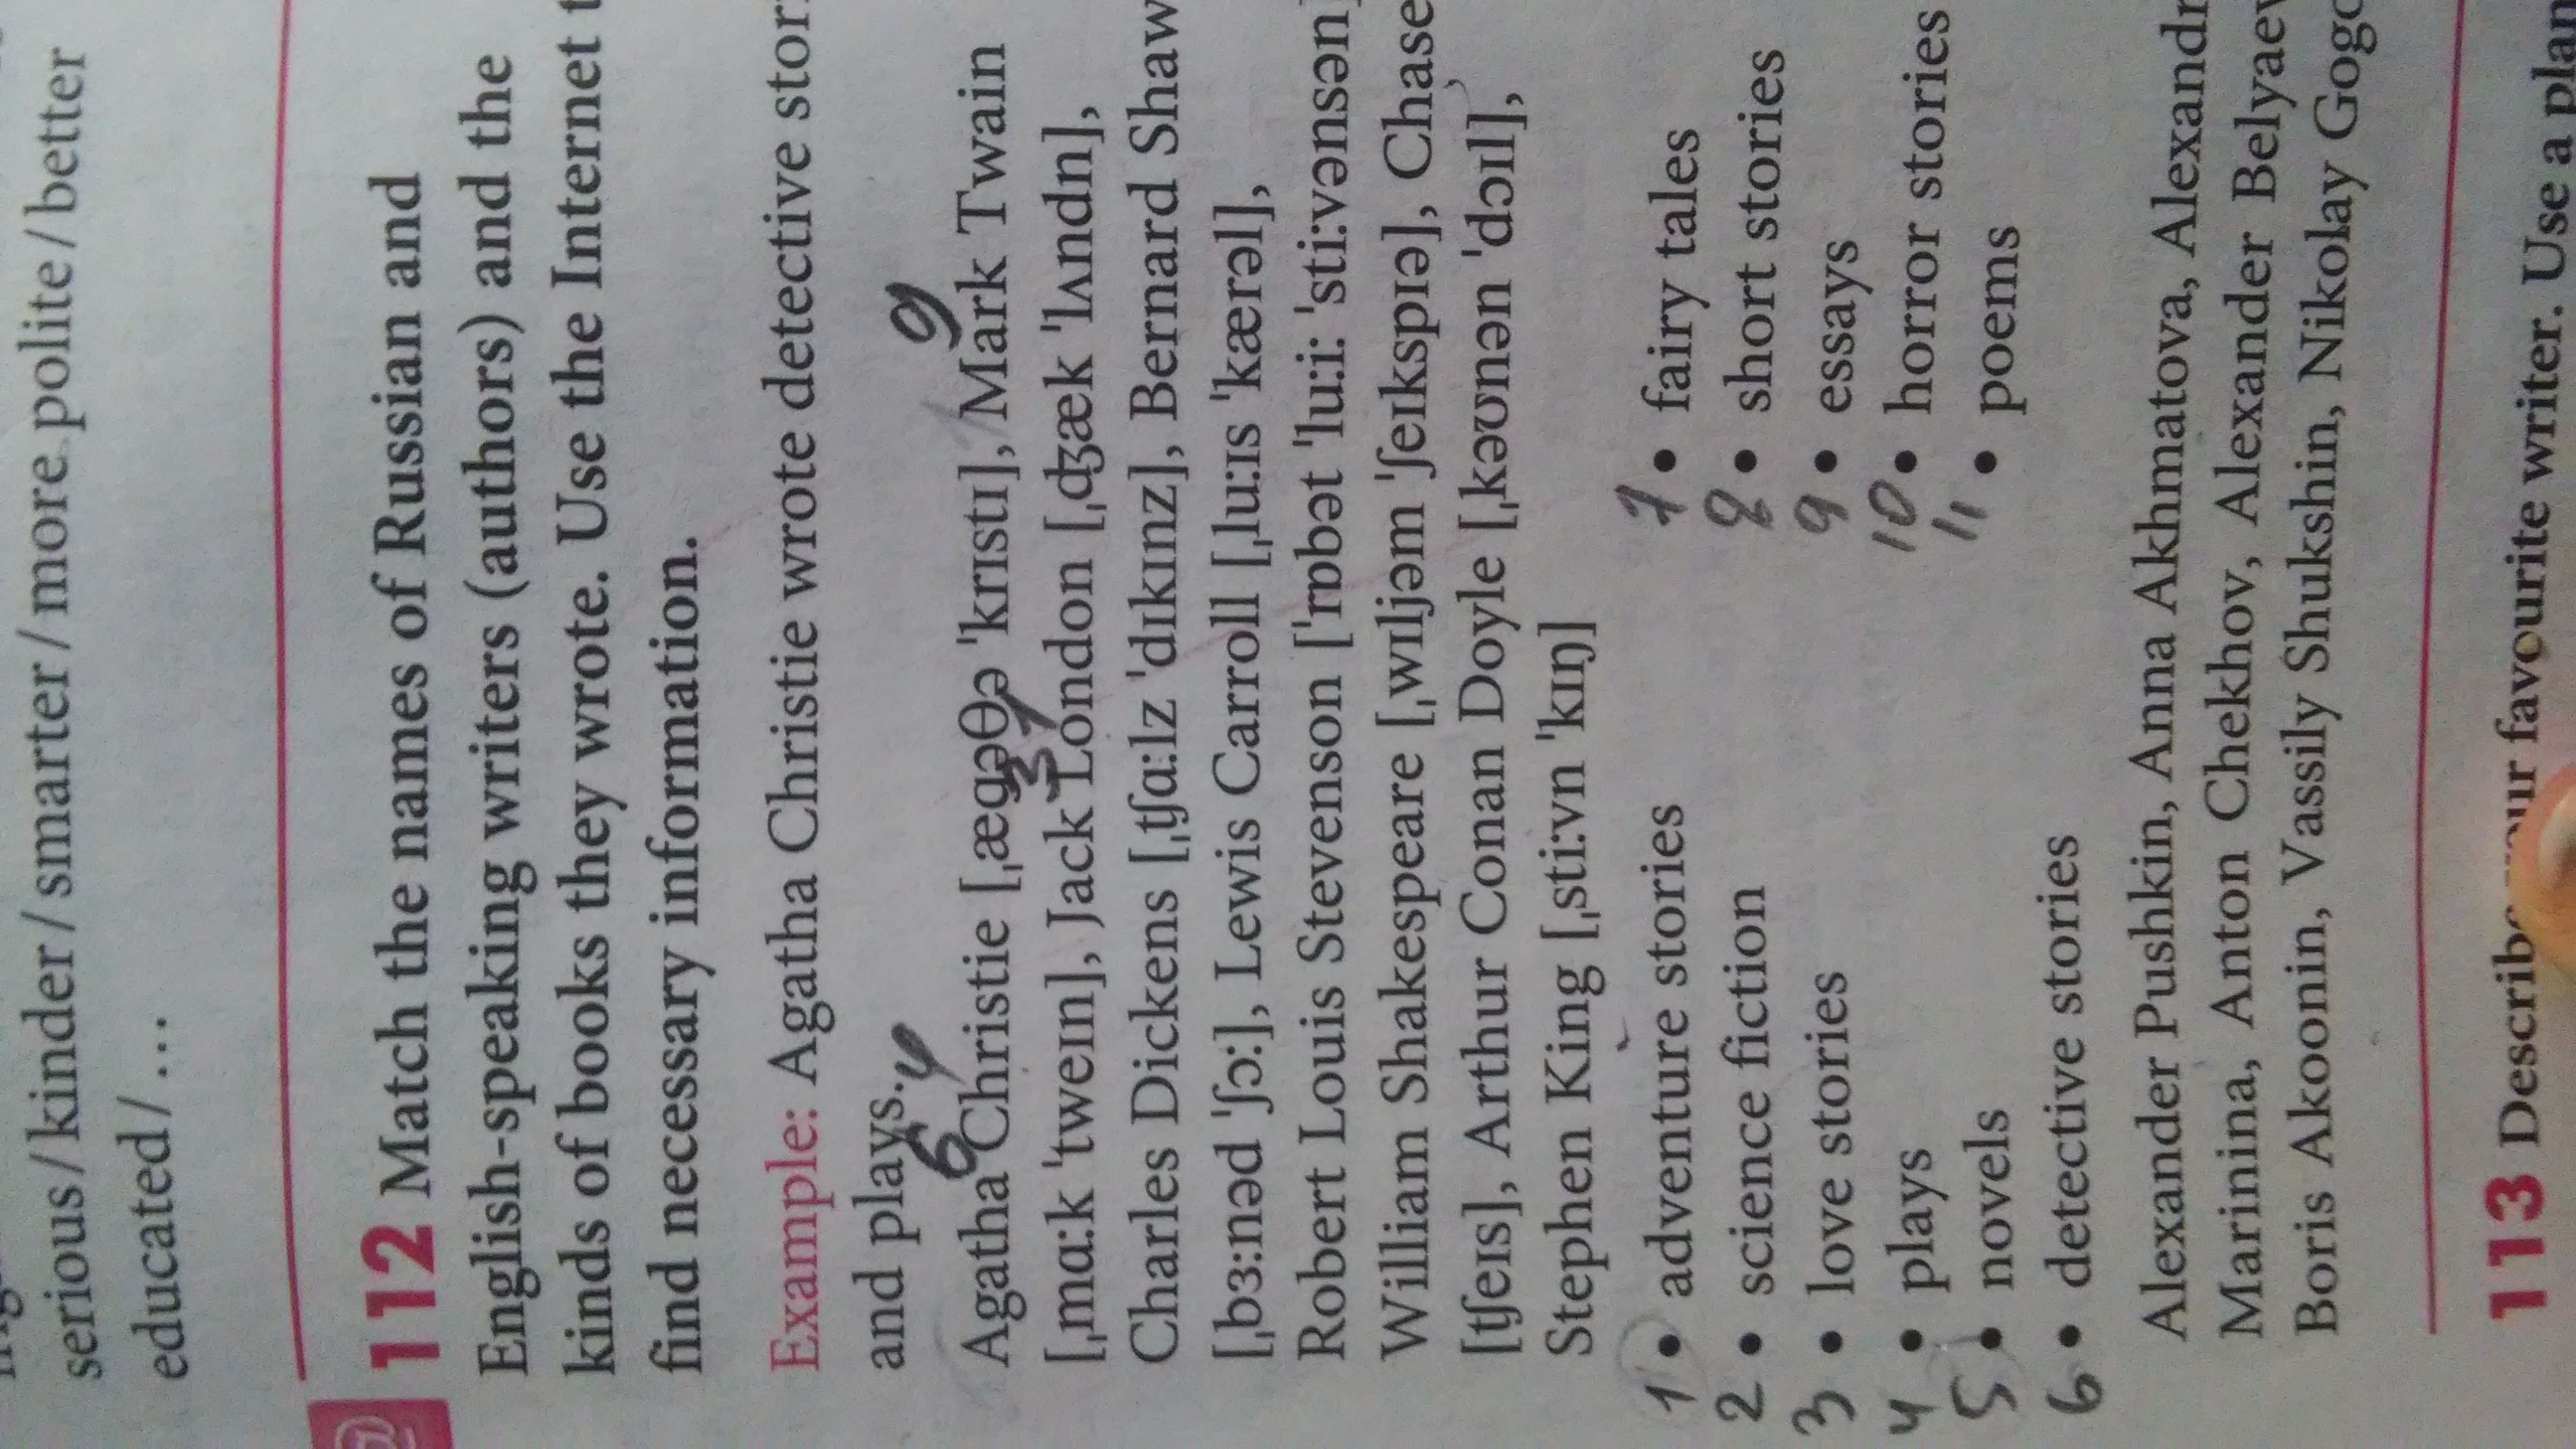 serious/kinder/smarter/more polite/better
educated/...
112 Match the names of Russian and
English-speaking writers (authors) and the
kinds of books they wrote. Use the Internet
find necessary information.
Example: Agatha Christie wrote detective
and plays.
6 4 9
Agatha Christie [ˌægəθə ˈkrɪstɪ], Mark Twain
[ˌmɑːk ˈtweɪn], Jack London [ˌʤæk ˈlʌndn],
Charles Dickens [ˌʧɑːlz ˈdɪkɪnz], Bernard Shaw
[ˌbɜːnəd ˈʃɔː], Lewis Carroll [ˌluːɪs ˈkærəl],
Robert Louis Stevenson [ˈrɒbət ˈluːiː ˈstiːvənsən]
William Shakespeare [ˌwɪljəm ˈʃeɪkspɪə], Chase
[ʧeɪs], Arthur Conan Doyle [ˌkəʊnən ˈdɔɪl],
Stephen King [ˌstiːvn ˈkɪŋ]
1 • adventure stories
2 • science fiction
3 • love stories
4 • plays
5 • novels
6 • detective stories
7 • fairy tales
8 • short stories
9 • essays
10 • horror stories
11 • poems
Alexander Pushkin, Anna Akhmatova,
Marinina, Anton Chekhov, Alexander
Boris Akoonin, Vassily Shukshin, Nikolay
113 Describe your favourite writer. Use a